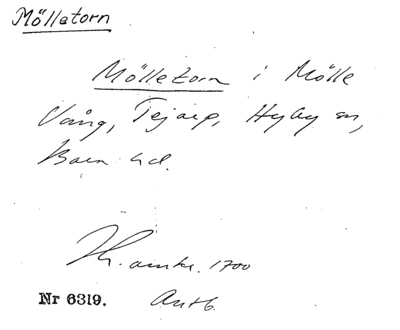 Mölletorn
Mölletorn i Mölle
Vång, Tejarp, Hyby sn,
Bara hd.
Th. ankr. 1700
Nr 6319. Antb.